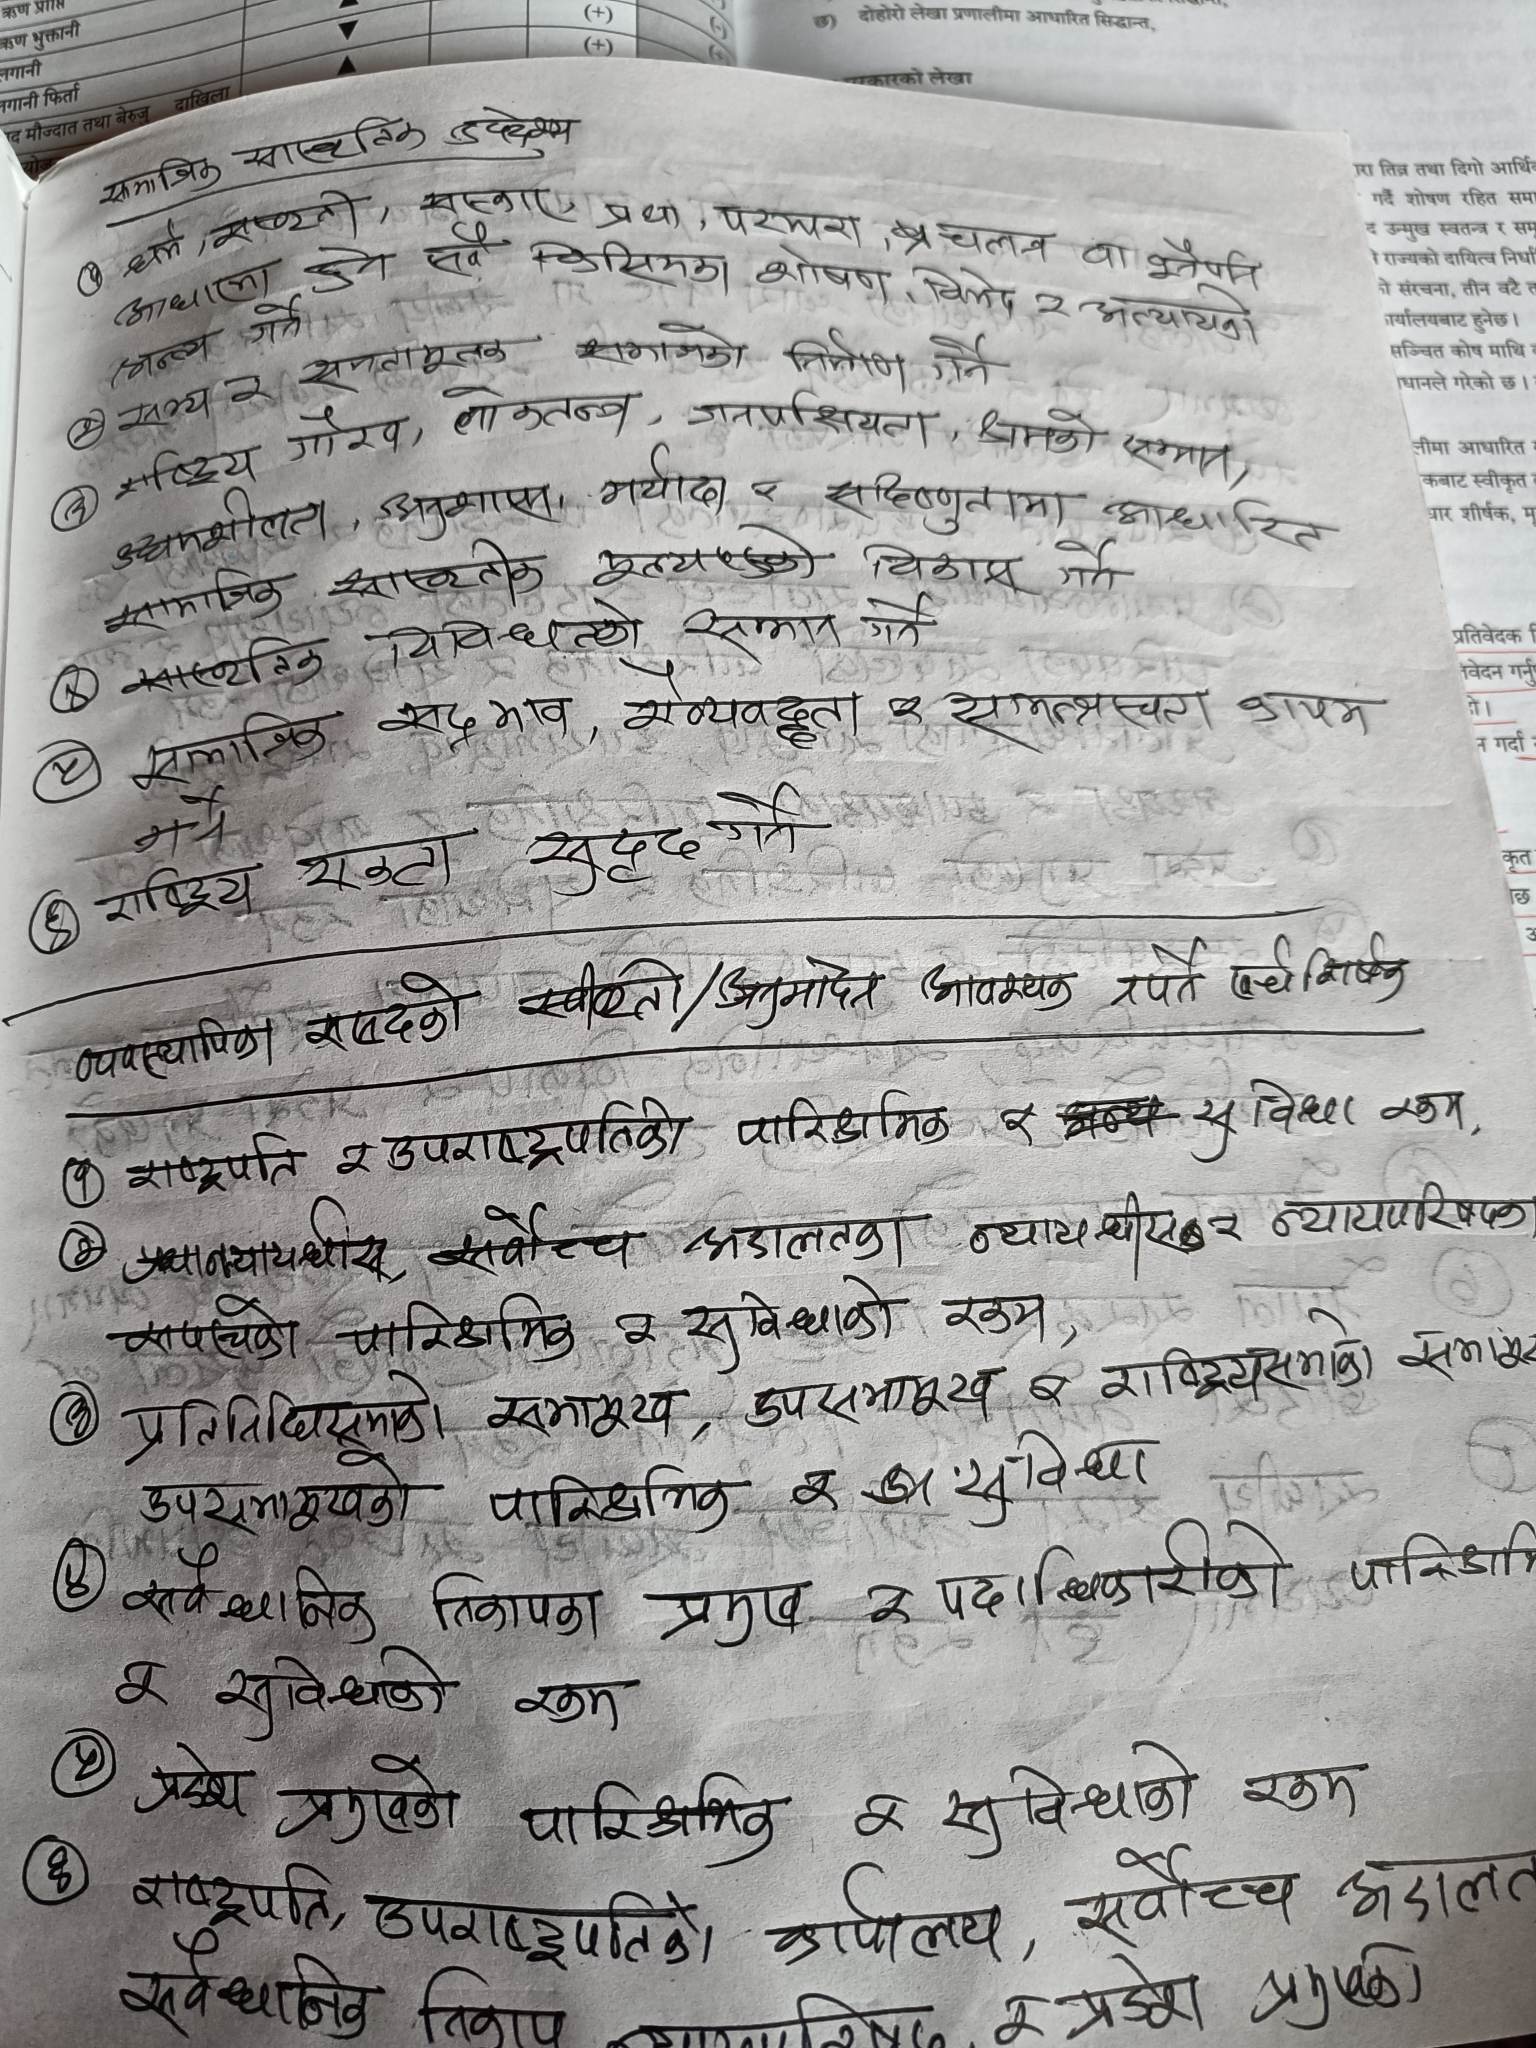 ऋण प्राप्ति
ऋण भुक्तानी (+)
लगानी (+)
लगानी फिर्ता
मौज्दात तथा बेरुजु दाखिला
छ) दोहोरो लेखा प्रणालीमा आधारित सिद्धान्त,
सरकारको लेखा
सामाजिक सास्कृतिक उद्देश्य
१ धर्म, सस्कृती, सस्कार, प्रथा, परम्परा, प्रचलन वा कुनैपनि
आधारमा हुने सवै किसिमका शोषण, विभेद र अन्यायको
अन्त्य गर्ने
२ सभ्य र समतामूलक समाजको निर्माण गर्ने
३ राष्ट्रिय गौरव, लोकतन्त्र, जनपक्षियता, श्रमको सम्मान,
उद्यमशीलता, अनुशासन, मर्यादा र सहिष्णुतामा आधारित
सामाजिक सास्कृतीक मूल्यहरुको विकास गर्ने
४ सास्कृतिक विविधताको सम्मान गर्ने
५ सामाजिक सद्भाव, ऐक्यवद्धता र सामन्जस्यता कायम
गर्ने
६ राष्ट्रिय एकता सुदृढ गर्ने
व्यवस्थापिका संसदको स्वीकृती/अनुमोदन आवश्यक नपर्ने खर्च शिर्षक
१ राष्ट्रपति र उपराष्ट्रपतिको पारिश्रमिक र सुविधा रकम,
२ प्रधानन्यायधीस, सर्वोच्च अदालतका न्यायधीस र न्यायपरिषदका
सदस्यको पारिश्रमिक र सुविधाको रकम,
३ प्रतिनिधिसभाको सभामूख, उपसभामूख र राष्ट्रियसभाको
उपसभामूखको पारिश्रमिक र सुविधा
४ सवैधानिक निकायका प्रमुख र पदाधिकारीको
र सुविधाको रकम
५ प्रदेश प्रमुखको पारिश्रमिक र सुविधाको रकम
६ राष्ट्रपति, उपराष्ट्रपतिको कार्यालय, सर्वोच्च अदालत
सवैधानिक निकाय र प्रदेश प्रमुखको
तिब्र तथा दिगो
गर्दै शोषण रहित
उन्मुख स्वतन्त्र र
राज्यको दायित्व
संरचना, तीन वटै
हुनेछ।
सञ्चित कोष माथि
गरेको छ।
आधारित
स्वीकृत
शीर्षक,
प्रतिवेदक
गर्दा